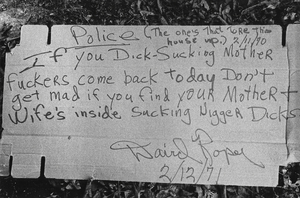 Police (The ones that tore this
house up.) 2/11/70
If you Dick-Sucking Mother
fuckers come back today Don't
get mad if you find your Mother +
Wife's inside Sucking Nigger Dicks
David Roper
2/12/71